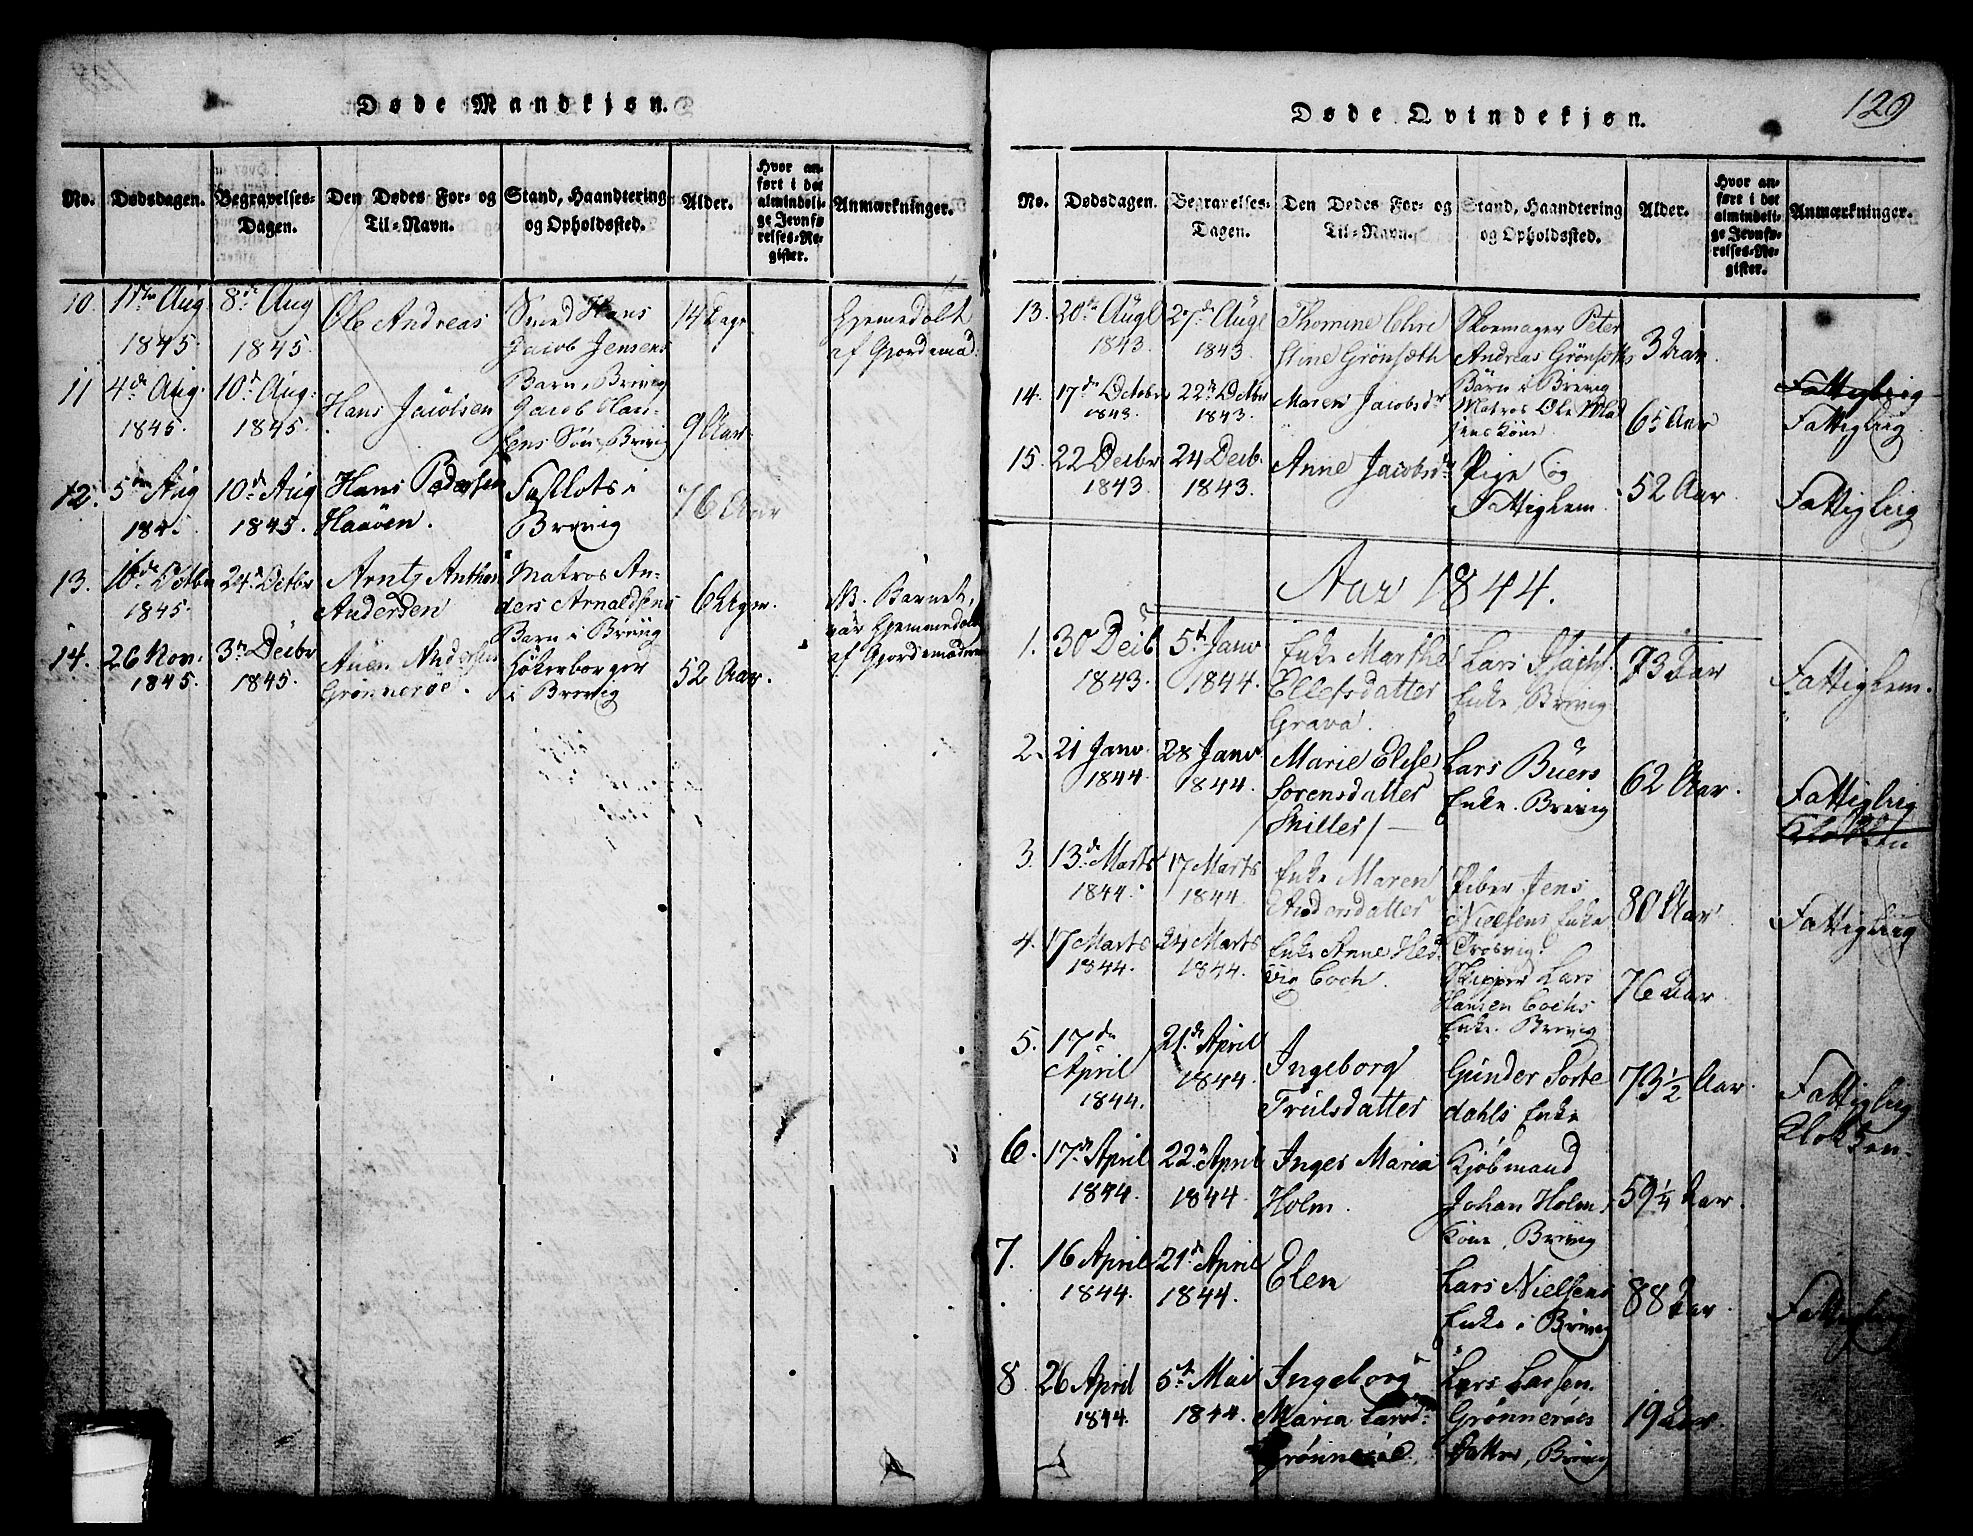 Døde Mandkjøn.
No. Dødsdagen. Begravelses-Dagen. Den Dødes For- og Til-Navn. Stand, Haandtering og Opholdssted. Alder. Hvor anført i det almindelige Jevnførelses-Register. Anmærkninger.
10. 1ste Aug 8de Aug Ole Andreas Smed Hans 14 Dage Hjemmedøbt
1845. 1845. Jacob Jensens af Gjordemod:
Barn, Brevig
11 4de Aug. 10de Aug: Hans Jacobsen Jacob Han- 9 Aar
1845. 1845. sens Søn, Brevig
12. 5te Aug 10de Aug Hans Pedersen i 76 Aar
184. 1845. Haaøen. Brevig
13. 24de Octbr Arntz Anthon Matros An- 6 Uger. Barnet,
1845. Andersen ders Arnaldsens var Hjemmedøbt
Barn i Brevig af Gjordemoderen
14. 26 Nov. 3die Decbr Andersen Høkerborger 52 Aar.
1845. 1845. Grønnerøe. i Brevig
129
Døde Qvindekjøn.
No. Dødsdagen. Begravelses-Dagen. Den Dødes For- og Til-Navn. Stand, Haandtering og Opholdssted. Alder. Hvor anført i det almindelige Jevnførelses-Register. Anmærkninger.
13. 20de Augt 27de Augt Thomine Chri Skoemager Peter 3 Aar.
1843. 1843. stine Grønsæth Andreas Grønsæths
Barn i Brevig
14. 17de Octobr 22de Octbr Maren Jacobsdr Matros Ole 65 Aar Fattiglig
1843. 1843. Kone Fattiglig
15. 22 Decbr 24 Decb. Anne Jacobsdr Pige og 52 Aar. Fattiglig
1843. 1843. Fattiglem.
Aar 1844.
1. 30 Decb 5te Janv Enke Marthe Lars 73 Aar Fattiglem.
1843. 1844. Ellefsdatter Enke, Brevig
Grava.
2. 21 Janv. 28 Janv Marie Elise Lars Buers 62 Aar. Fattiglig
1844. 1844. Sørensdatter Enke. Brevig
Miller/ — Klokken
3. 13de Marts 17 Marts Enke Maren Jens 80 Aar Fattiglig
1844. 1844. Andersdatter Nielsens Enke
Trosvig.
4. 17 Marts 24 Marts Enke Anne Hed Skipper Lars 76 Aar
1844. 1844. vig Coch. Hansen Cochs
Enke. Brevig
5. 17de 21de April Ingeborg Gunder Sorte 73½ Aar Fattiglig
April 1844. Trulsdatter dahls Enke Klokken.
1844.
6. 17de April 22de April Inger Maria Kjøbmand 59¼ Aar.
1844. 1844. Holm. Johan Holms
Kone, Brevig
7. 16 April 21de April Elen Lars Nielsens 88 Aar Fattiglig
1844. 1844. Enke i Brevig
8 26 April 5te Mai Ingeborg Lars Larsen. 19 Aar.
1844. 1844. Maria Larsdr Grønnerøes
Grønnerøe. Datter, Brevig